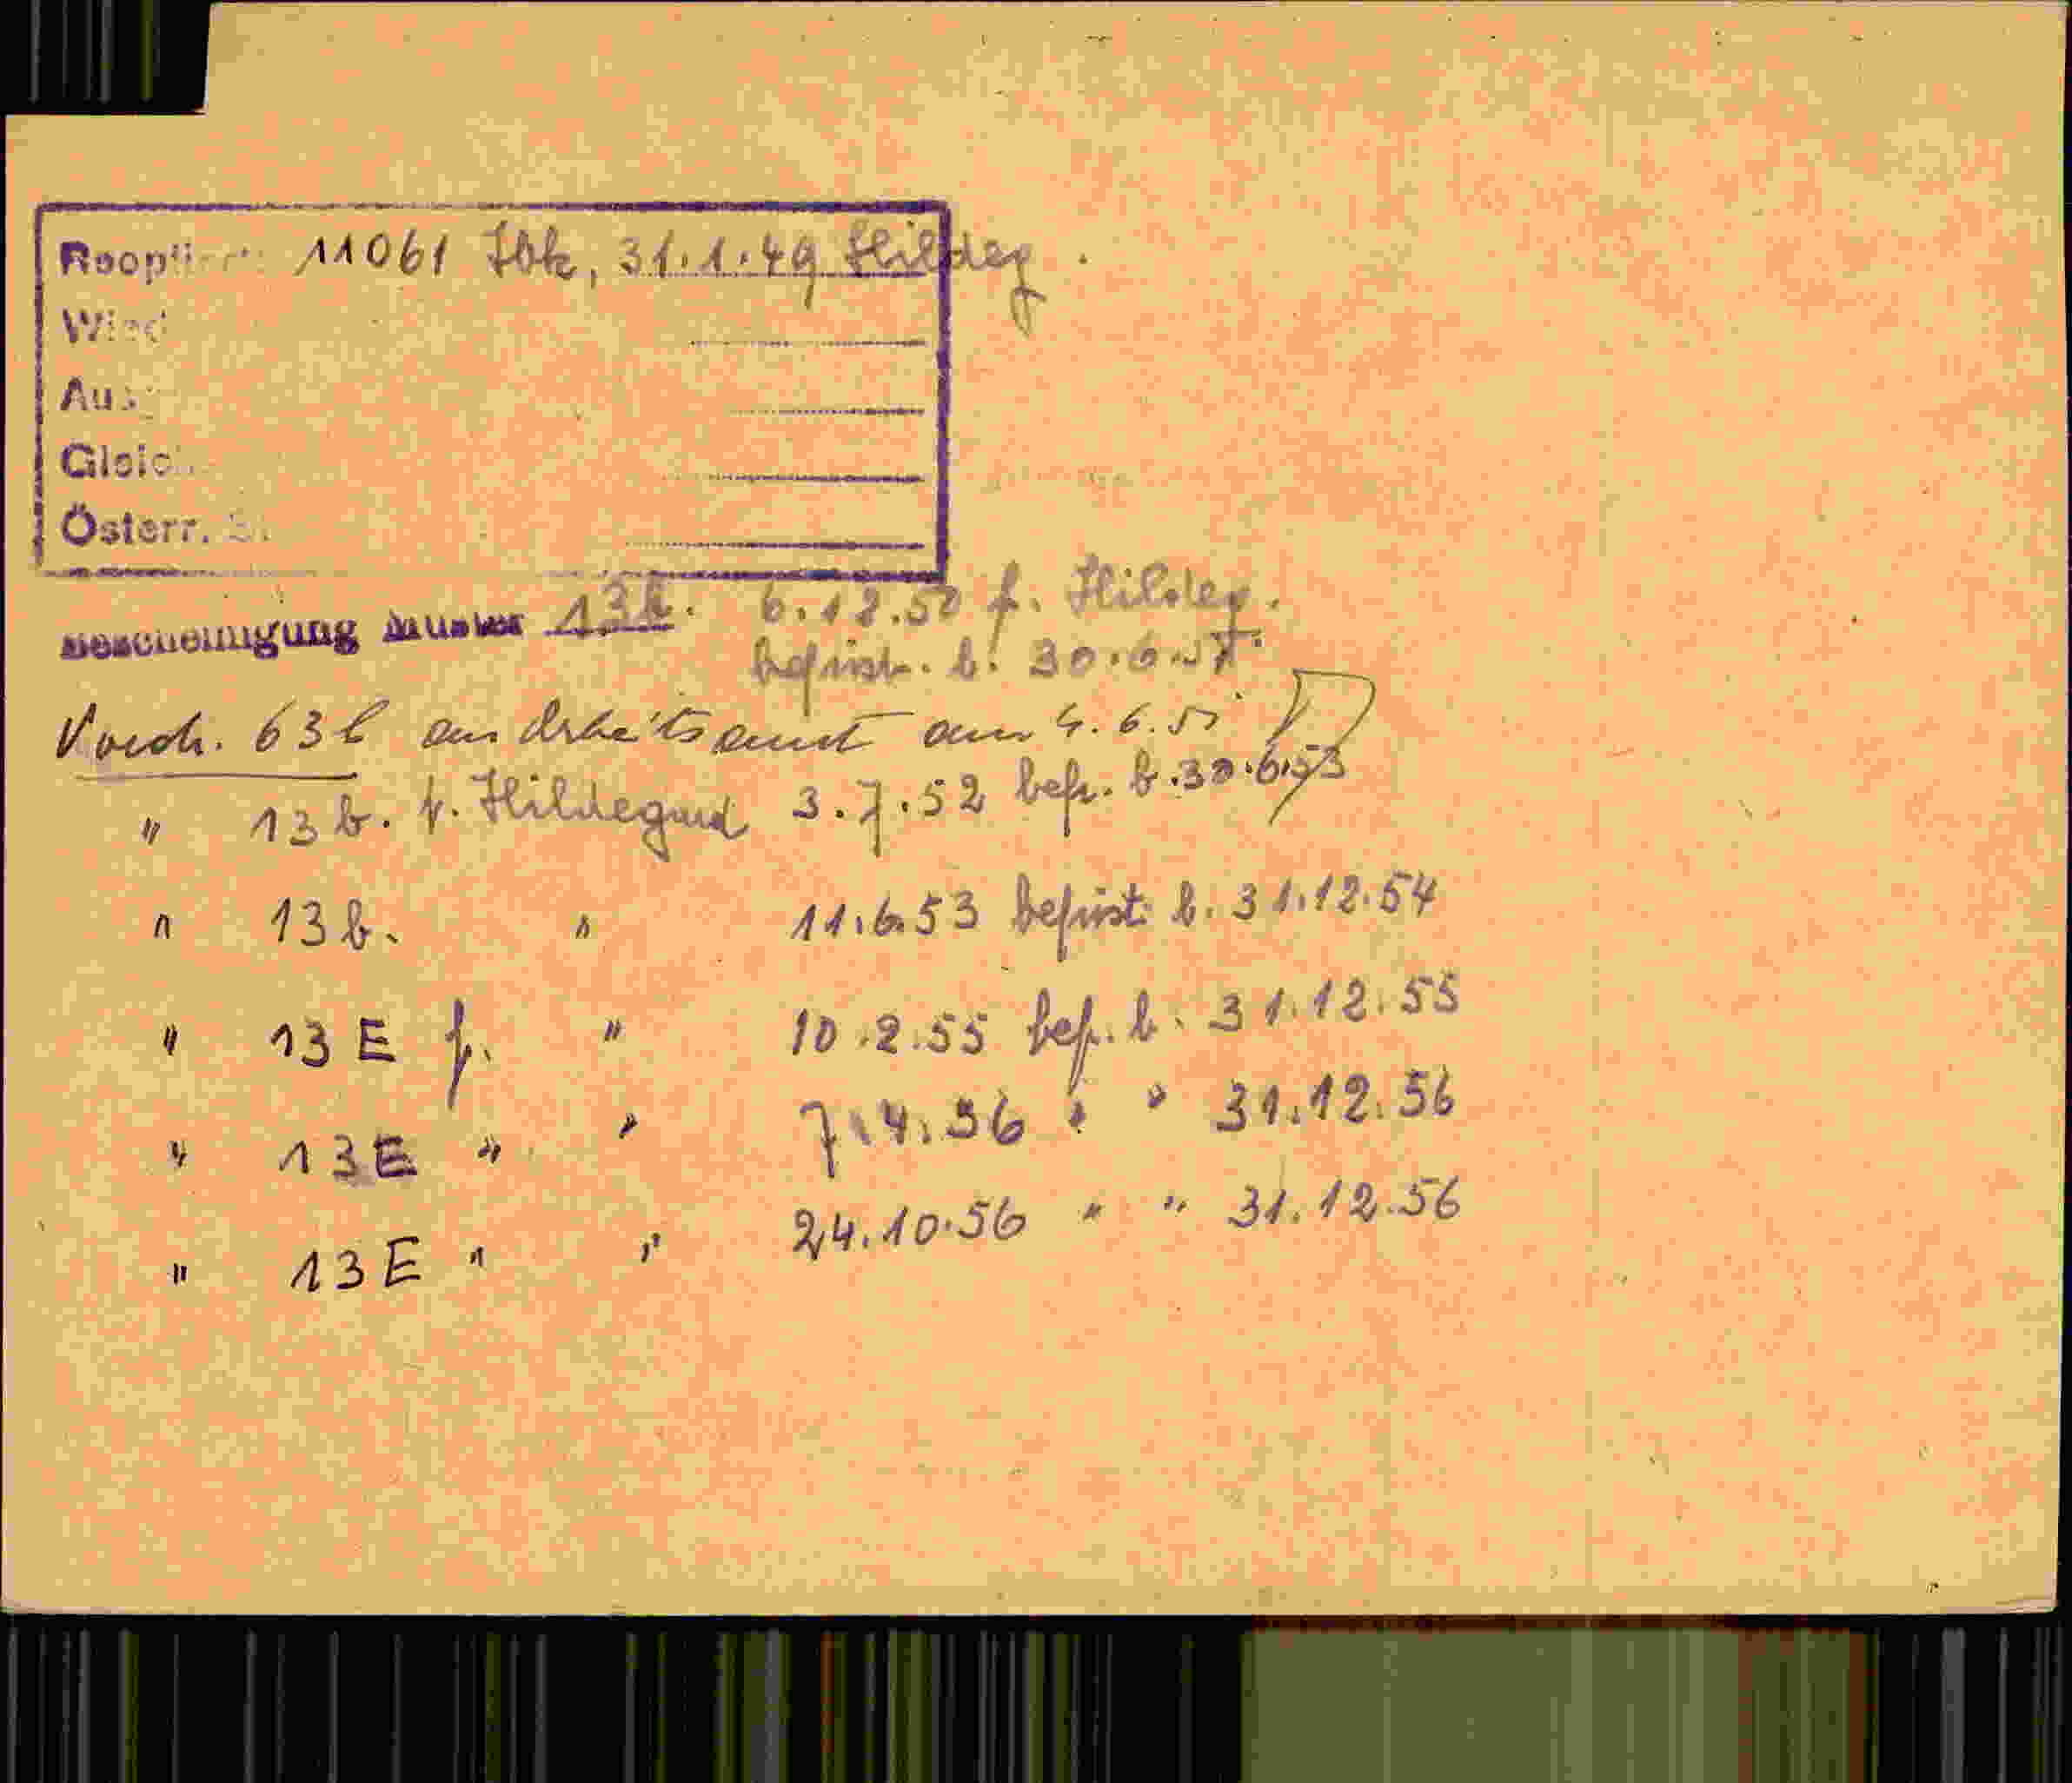 Reoptiert: 11061 Ibk, 31.1.49 Hildeg.
Wied
Ausg
Gleich
Österr. St.
Bescheinigung Muster 13b. 6.12.50 f. Hildeg.
befrist. b. 30.6.51.
Vordr. 63b an Arbeitsamt am 4.6.51
" 13b. f. Hildegard 3.7.52 befr. b. 30.6.53
" 13b. " 11.6.53 befrist. b. 31.12.54
" 13E f. " 10.2.55 bef. b. 31.12.55
" 13E " " 7.4.56 " " 31.12.56
" 13E " " 24.10.56 " " 31.12.56